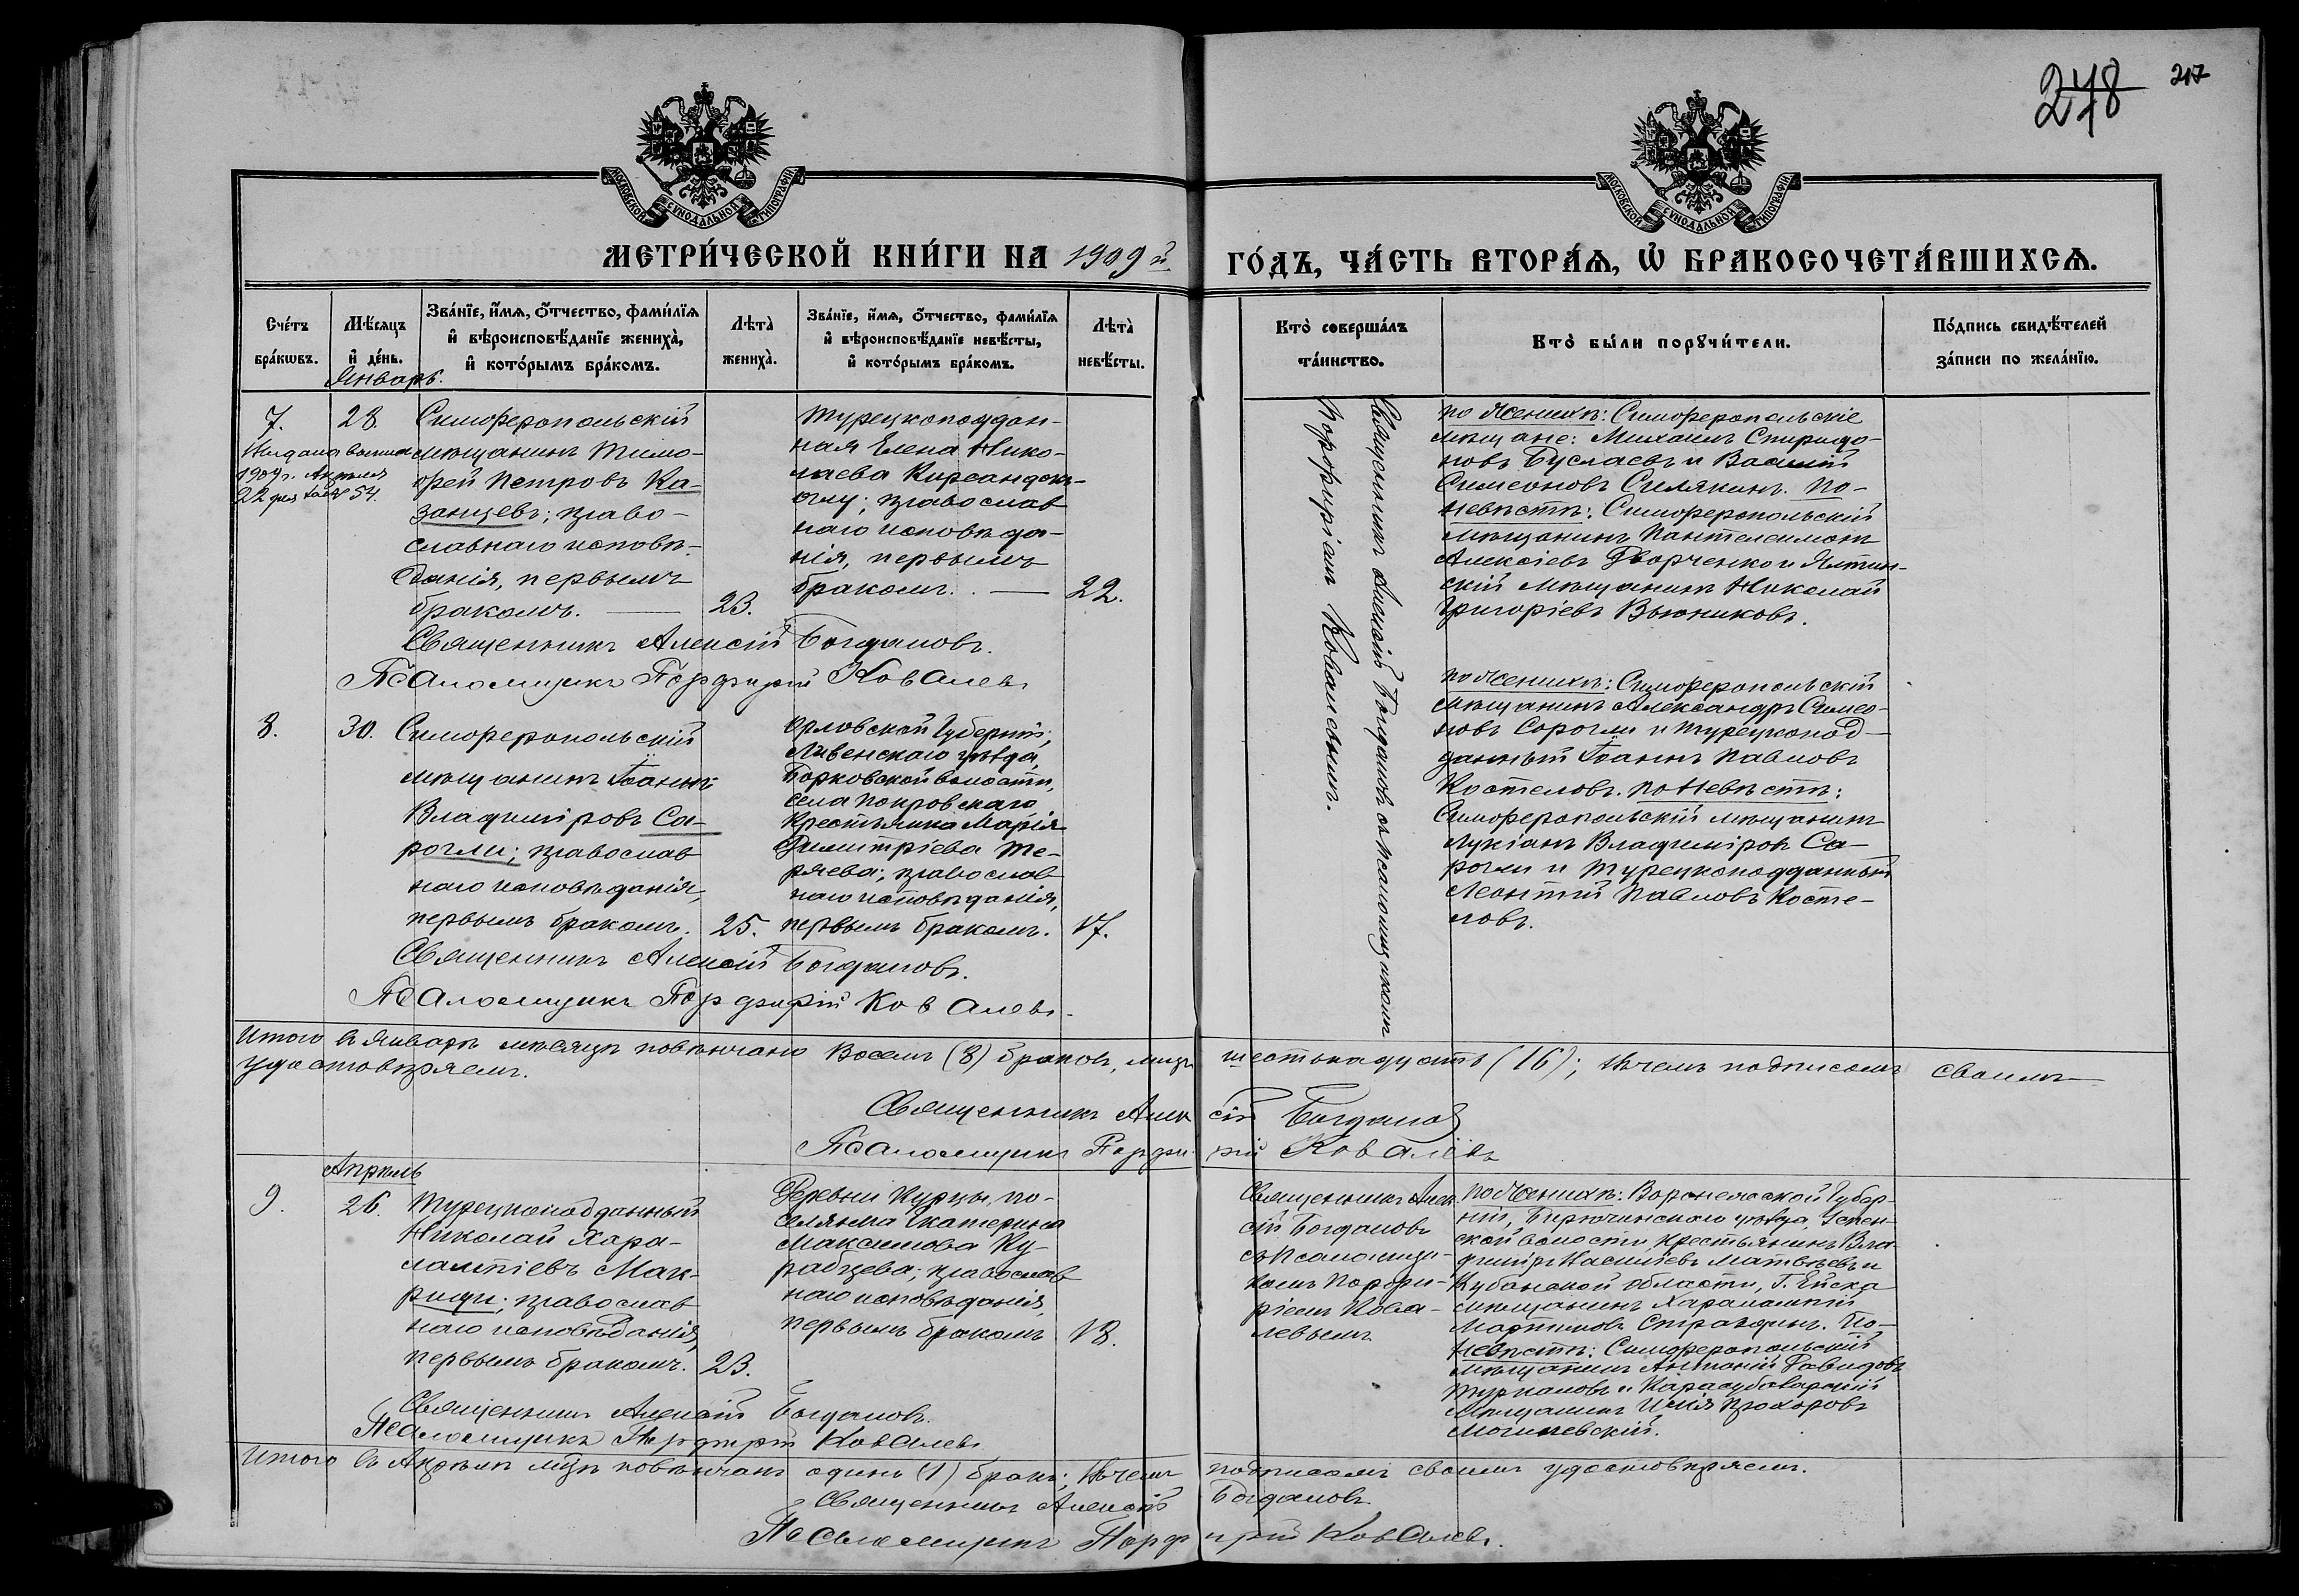 248 217
МОСКОВСКОЙ СѴНОДАЛЬНОЙ ТИПОГРАФІИ
МОСКОВСКОЙ СѴНОДАЛЬНОЙ ТИПОГРАФІИ
МЕТРИ́ЧЕСКОЙ КНИ́ГИ НА 1909й ГО́ДЪ, ЧА́СТЬ ВТОРА́Ѧ, Ѡ҆ БРАКОСОЧЕТА́ВШИХСѦ.
Сче́тъ бра́кѡвъ.
Мѣ́сѧцъ и҆ де́нь.
Зва́нїе, и҆́мѧ, ѻ҆́тчество, фами́лїѧ
и҆ вѣроисповѣ́данїе жениха̀,
и҆ кото́рымъ бра́комъ.
Лѣта̀ жениха̀.
Зва́нїе, и҆́мѧ, ѻ҆́тчество, фами́лїѧ
и҆ вѣроисповѣ́данїе невѣ́сты,
и҆ кото́рымъ бра́комъ.
Лѣта̀ невѣ́сты.
Кто̀ соверша́лъ та́инство.
Кто̀ бы́ли порꙋчи́тели.
По́дпись свидѣ́телей
за́писи по жела́нїю.
Январь.
7.
28.
Симферопольскій
мѣщанинъ Тимо-
фей Петровъ Ка-
занцевъ; право-
славнаго исповѣ-
данія, первымъ
бракомъ. — 23.
Турецкоподдан-
ная Елена Нико-
лаева Кирсандсъ-
оглу; православ
наго исповѣда-
нія, первымъ
бракомъ. — 22.
Священникъ Алексій Богдановъ.
Псаломщикъ Порфирій Ковалевъ
Священникъ Алексій Богдановъ съ псаломщикомъ
Порфиріемъ Ковалевымъ.
по Женихѣ: Симферопольскіе
мѣщане: Михаилъ Спиридо-
новъ Буслаевъ и Василій
Симеоновъ Силякинъ. По-
невѣстѣ: Симферопольскій
мѣщанинъ Пантелеимонъ
Алексіевъ Дворченко и Ялтин-
скій мѣщанинъ Николай
Григоріевъ Вьюниковъ.
8.
30.
Симферопольскій
мѣщанинъ Іоаннъ
Владиміровъ Са-
рогли; православ
наго исповѣданія,
первымъ бракомъ. 25.
Орловской Губерніи,
Ливенскаго уѣзда,
Борковской волости,
села Покровскаго
крестьянка Марія
Димитріева Те-
ряева; православ
наго исповѣданія,
первымъ бракомъ. 17.
Священникъ Алексій Богдановъ.
Псаломщикъ Порфирій Ковалевъ.
по Женихѣ: Симферопольскій
мѣщанинъ Александръ Симео-
новъ Сорогли и турецкопод-
данный Іоаннъ Павловъ
Костеловъ. по Невѣстѣ:
Симферопольскій мѣщанинъ
Лукіанъ Владиміровъ Са-
рогли и турецкоподданный
Леонтій Павловъ Косте-
ловъ.
Итого въ Январѣ мѣсяцѣ повѣнчано Восемь (8) браковъ, лицъ шестьнадцать (16); въ чемъ подписомъ своимъ
удостовѣряемъ.
Священникъ Алексій Богданов
Псаломщикъ Порфирій Ковалевъ
Апрѣль
9.
26.
Турецкоподданный
Николай Хара-
лампіевъ Мак-
риди; православ
наго исповѣданія,
первымъ бракомъ. 23.
Деревни Курцы, по-
селянка Екатерина
Максимова Ку-
рабцева; православ
наго исповѣданія,
первымъ бракомъ 18.
Священникъ Алек
сій Богдановъ
съ Псаломщи-
комъ Порфи-
ріемъ Кова-
левымъ
по Женихѣ: Воронежской Губер-
ніи, Бирючинскаго уѣзда, Успен-
ской волости, крестьянинъ Вла-
диміръ Васильевъ Матвѣевъ и
Кубанской области, Г. Ейска
мѣщанинъ Харалампій
Мартиновъ Спрандинъ. По-
невѣстѣ: Симферопольскій
мѣщанинъ Антоній Давидовъ
Туркаловъ и Карасубазарскій
мѣщанинъ Илія Прохоровъ
Могилевскій.
Священникъ Алексій Богдановъ.
Псаломщикъ Порфирій Ковалевъ
Итого въ Апрѣлѣ мѣцѣ повѣнчанъ одинъ (1) бракъ; въ чемъ подписомъ своимъ удостовѣряемъ.
Священникъ Алексій Богдановъ.
Псаломщикъ Порфирій Ковалевъ.